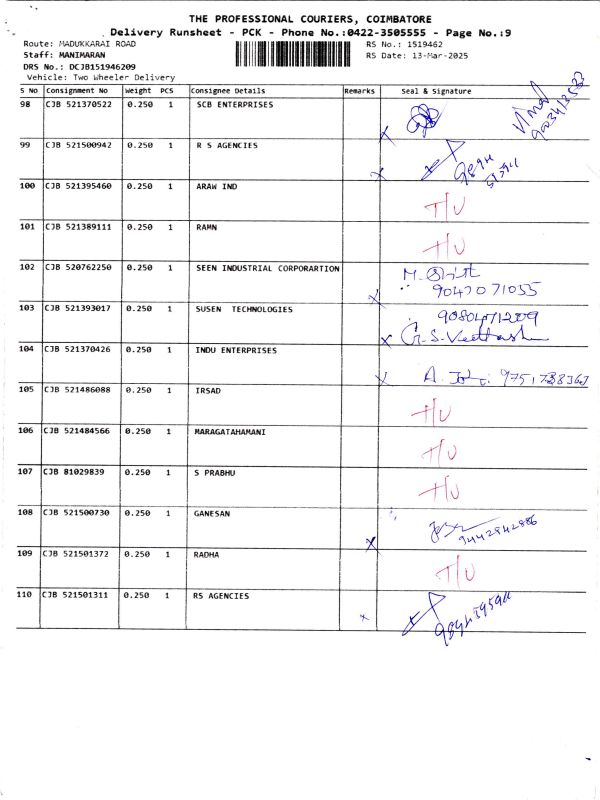 THE PROFESSIONAL COURIERS, COIMBATORE
Delivery Runsheet - PCK - Phone No.:0422-3505555 - Page No.:9
Route: MADUKKARAI ROAD RS No.: 1519462
Staff: MANIMARAN RS Date: 13-Mar-2025
DRS No.: DCJB151946209
Vehicle: Two Wheeler Delivery
S No Consignment No Weight PCS Consignee Details Remarks Seal & Signature
98 CJB 521370522 0.250 1 SCB ENTERPRISES
99 CJB 521500942 0.250 1 R S AGENCIES
100 CJB 521395460 0.250 1 ARAW IND T/U
101 CJB 521389111 0.250 1 RAMN T/U
102 CJB 520762250 0.250 1 SEEN INDUSTRIAL CORPORARTION
9047071055
103 CJB 521393017 0.250 1 SUSEN TECHNOLOGIES
104 CJB 521370426 0.250 1 INDU ENTERPRISES
105 CJB 521486088 0.250 1 IRSAD T/U
106 CJB 521484566 0.250 1 MARAGATAHAMANI T/U
107 CJB 81029839 0.250 1 S PRABHU T/U
108 CJB 521500730 0.250 1 GANESAN
9442842886
109 CJB 521501372 0.250 1 RADHA T/U
110 CJB 521501311 0.250 1 RS AGENCIES